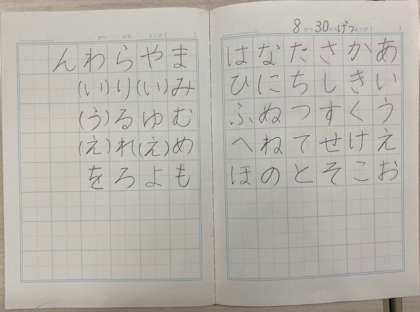 8 30 げつ
あいうえお
かきくけこ
さしすせそ
たちつてと
なにぬねの
はひふへほ
まみむめも
や(い)ゆ(え)よ
らりるれろ
わ(い)(う)(え)を
ん